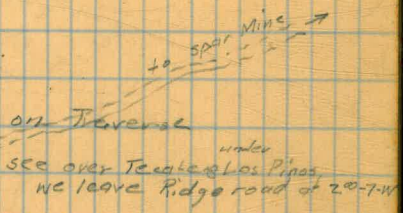 to spar Mine
on Traverse
under
see over Tecate Los Pinos,
we leave Ridge road at 2⁰⁰-7-W